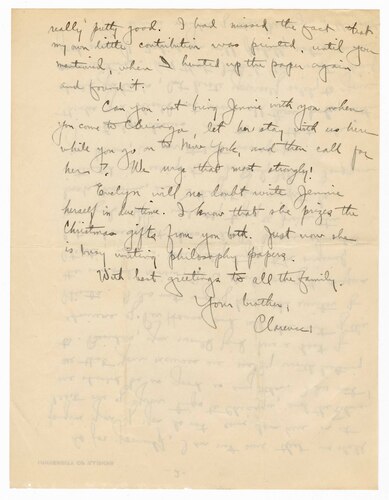 really pretty good. I had missed the fact that
my own little contribution was printed, until you
mentioned, when I hunted up the paper again
and found it.
Can you not bring Jennie with you when
you come to Chicago, let her stay with us here
while you go on to New York, and then call for
her? We urge that most strongly!
Evelyn will no doubt write Jennie
herself in due time. I know that she prizes the
Christmas gifts from you both. Just now she
is busy writing philosophy papers.
With best greetings to all the family.
Your brother,
Clarence